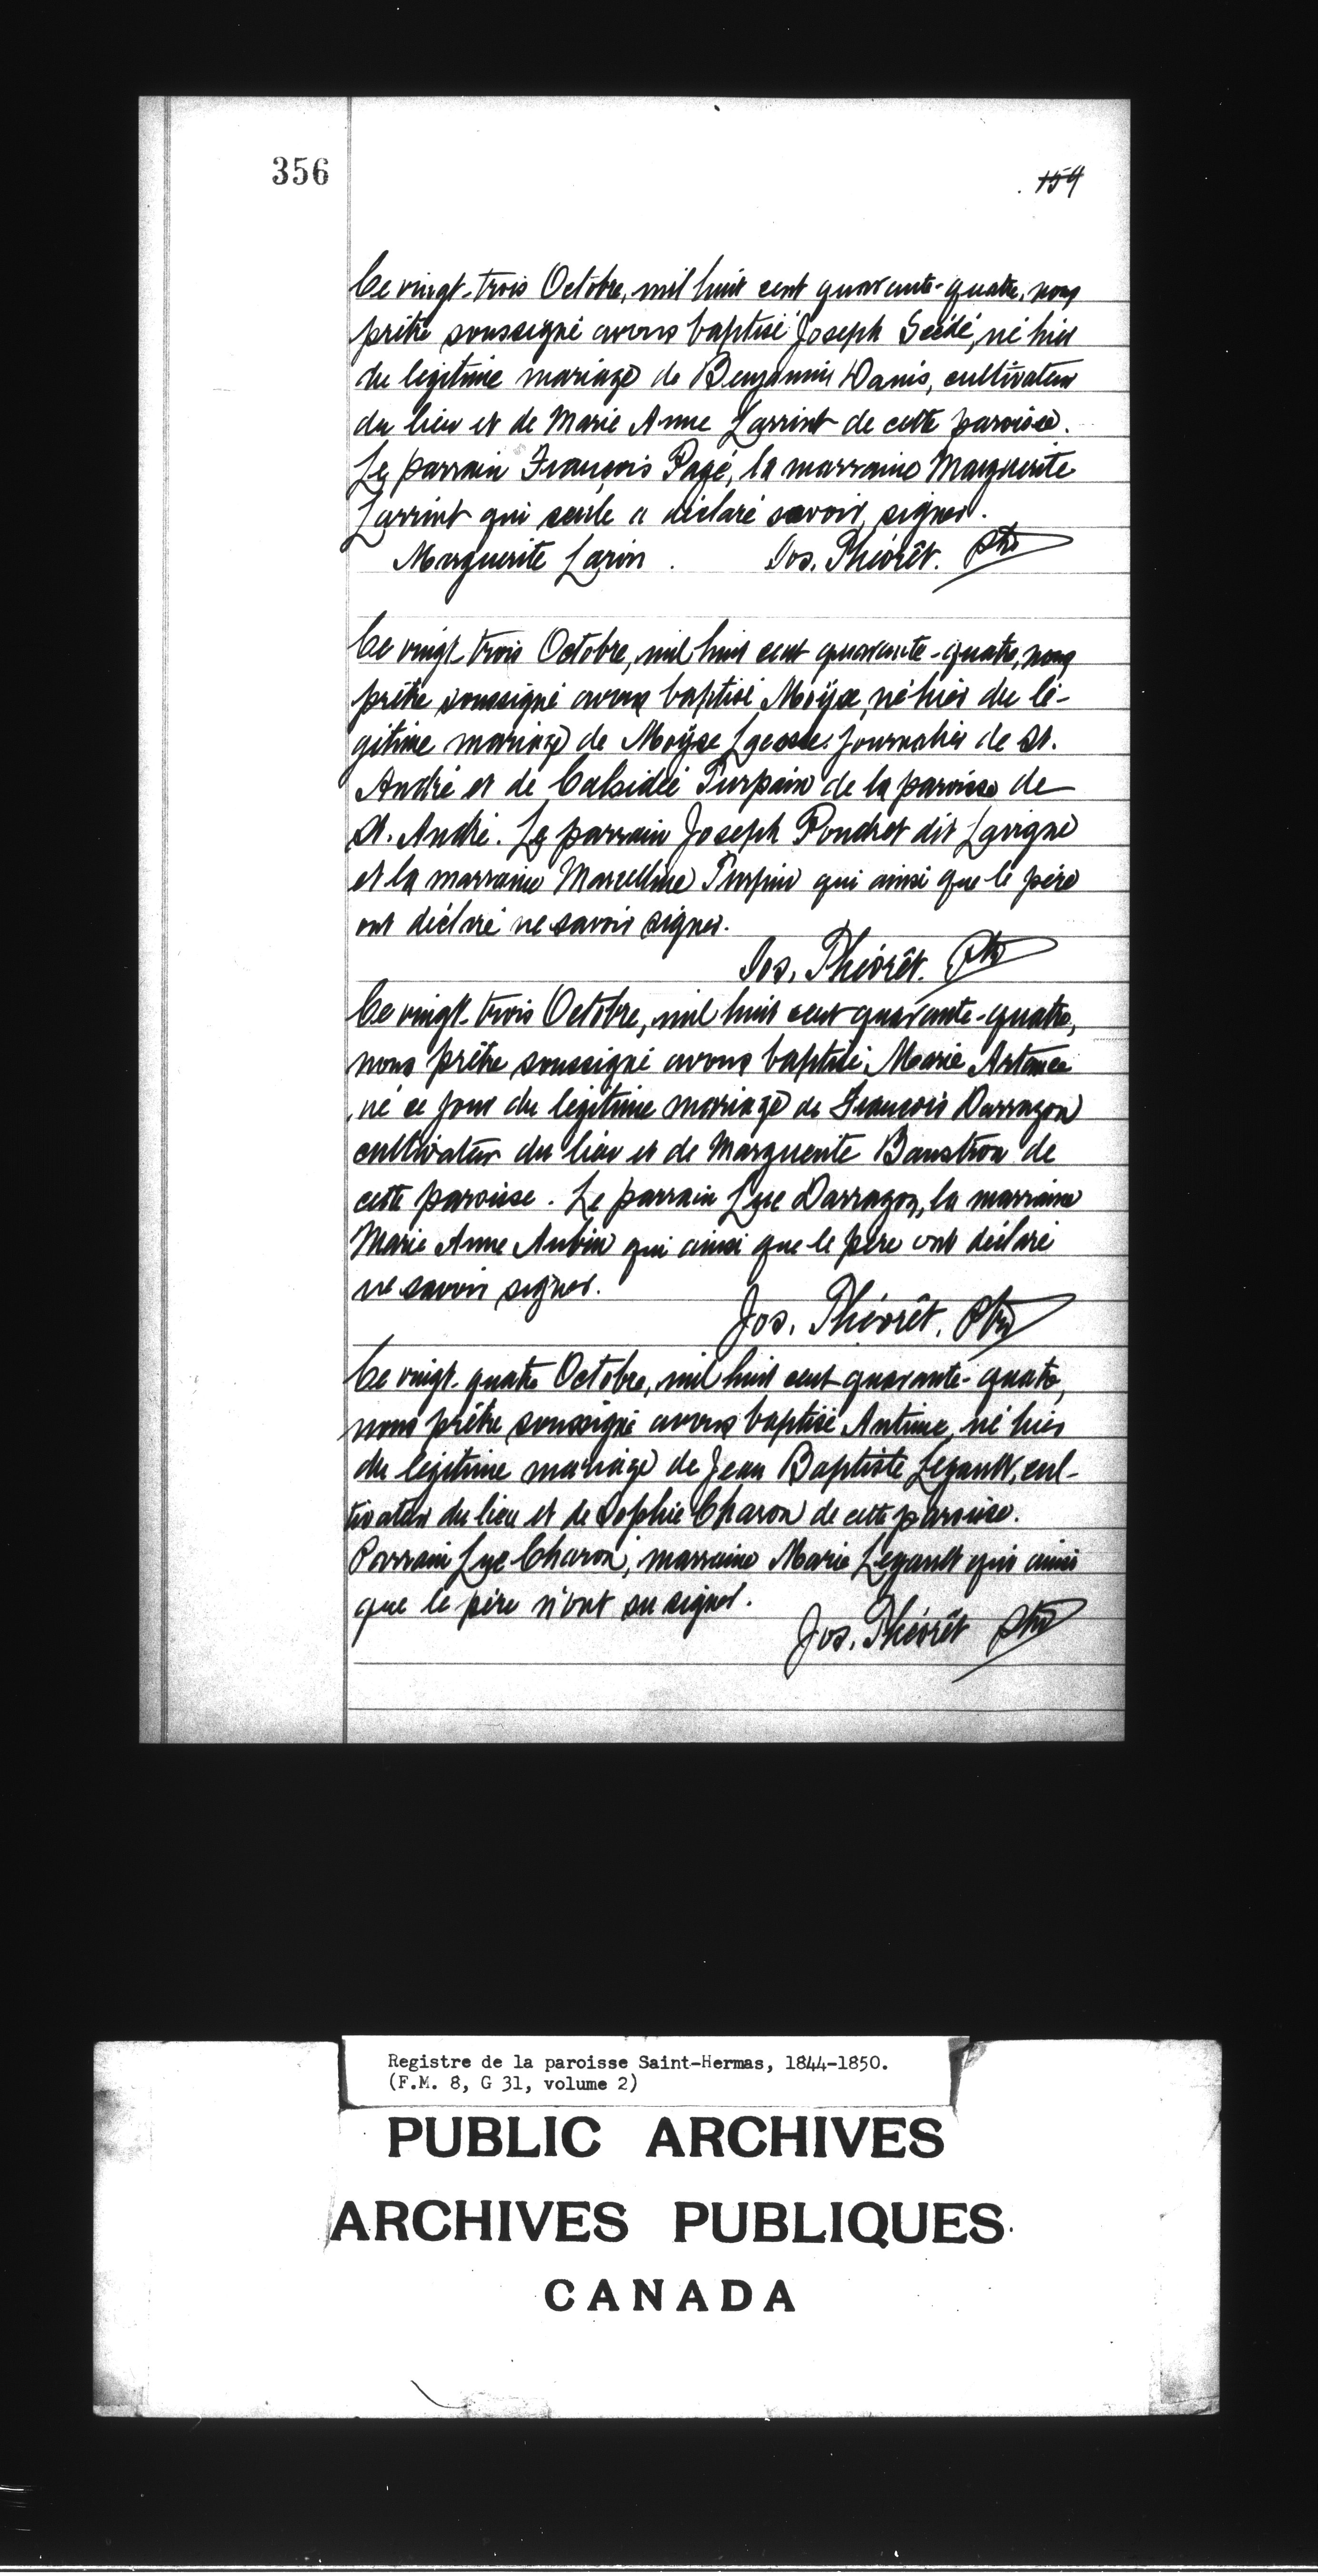 356
154
Ce vingt-trois Octobre, mil huit cent quarante-quatre, nous
prêtre soussigné avons baptisé Joseph né hier
du légitime mariage de Benjamin Danis, cultivateur
du lieu et de Marie Anne Larrint de cette paroisse.
Le parrain François Pagé, la marraine Marguerite
Larrint qui seule a déclaré savoir signer.
Marguerite Larin. Jos. Théorêt. Ptre
Ce vingt-trois Octobre, mil huit cent quarante-quatre, nous
prêtre soussigné avons baptisé Moÿse, né hier du lé-
gitime mariage de Moÿse journalier de St.
André et de Turpain de la paroisse de
St. André. Le parrain Joseph Poudret dit Lavigne
et la marraine Marcelline Turpin qui ainsi que le père
ont déclaré ne savoir signer.
Jos. Théorêt. Ptre
Ce vingt-trois Octobre, mil huit cent quarante-quatre,
nous prêtre soussigné avons baptisé Marie
né ce jour du légitime mariage de François Darragon
cultivateur du lieu et de Marguerite Baustron de
cette paroisse. Le parrain Luc Darragon, la marraine
Marie Anne Aubin qui ainsi que le père ont déclaré
ne savoir signer.
Jos. Théorêt. Ptre
Ce vingt-quatre Octobre, mil huit cent quarante-quatre,
nous prêtre soussigné avons baptisé Antime, né hier
du légitime mariage de Jean Baptiste Legault, cul-
tivateur du lieu et de Sophie Charon de cette paroisse.
Parrain Luc Charon, marraine Marie Legault qui ainsi
que le père n'ont su signer.
Jos. Théorêt Ptre
Registre de la paroisse Saint-Hermas, 1844-1850.
(F.M. 8, G 31, volume 2)
PUBLIC ARCHIVES
ARCHIVES PUBLIQUES
CANADA